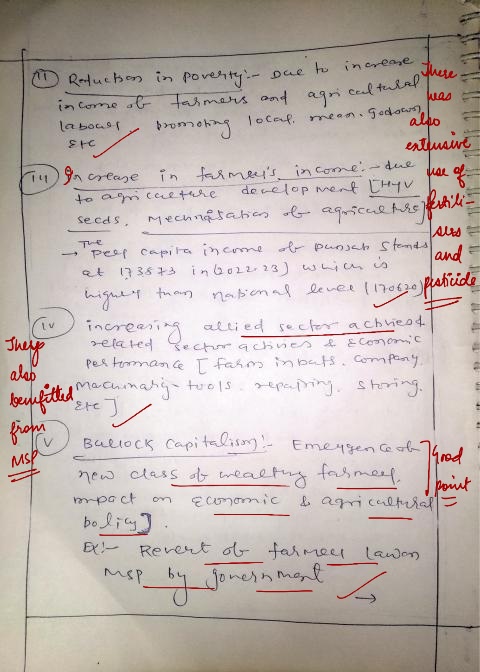 ii) Reduction in poverty:- Due to increase
income of farmers and agricultural
labours promoting local mean. Godown
etc
iii) Increase in farmer's income:- due
to agriculture development [HYV
seeds. Mechnisation of agriculture]
The
→ Peer capita income of Punjab Stands
at 173873 in (2022-23) which is
higher than national level (170620)
iv) increasing allied sector activies &
related sector activies & Economic
performance [farm inputs. company.
Machinary-tools. repairing. storing.
etc]
v) Bullock Capitalism:- Emergence of
new class of wealthy farmers.
impact on economic & agricultural
policy].
Ex:- Revert of farmer law on
MSP by government
→
There
was
also
extensive
use of
fertili-
sers
and
pesticide
They
also
benefitted
from
MSP
Good
point